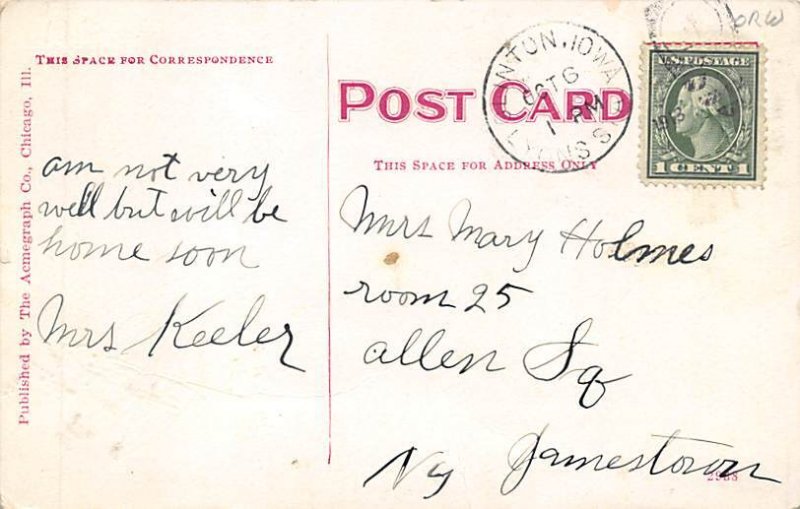 THIS SPACE FOR CORRESPONDENCE
am not very
well but will be
home soon
Mrs Keeler
Published by The Acmegraph Co., Chicago, Ill.
POST CARD
THIS SPACE FOR ADDRESS ONLY
CLINTON, IOWA
OCT 6
1 PM
LYONS S
U.S. POSTAGE
1 CENT 1
ORW
Mrs Mary Holmes
room 25
Allen Sq
Ny Jamestown